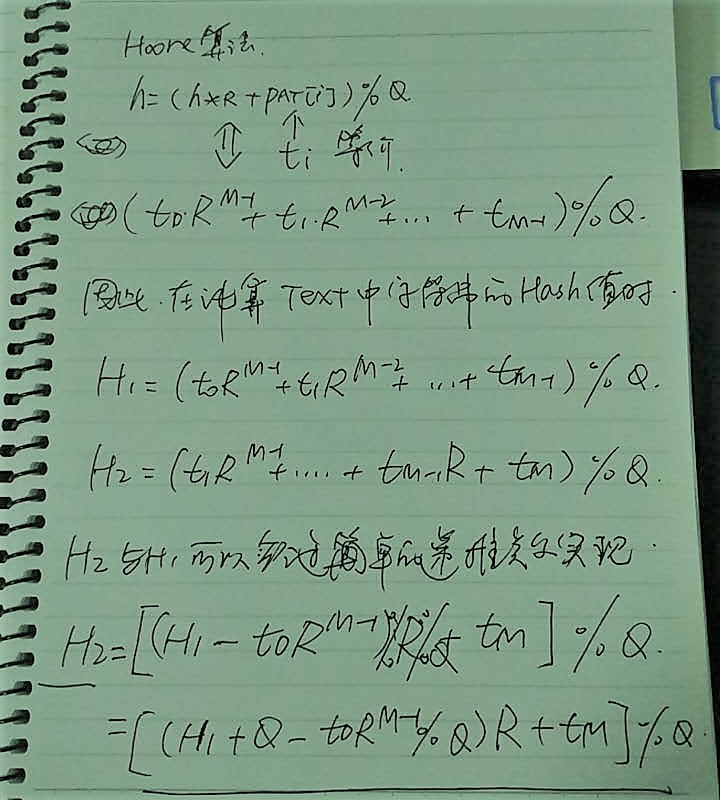 Hoore算法.
h=(h*R+PAT[i])%Q
⇕ ↑ ti 等价.
(t0·R^M-1+t1·R^M-2+...+tM-1)%Q.
因此.在计算Text中字符串的Hash值时.
H1=(t0R^M-1+t1R^M-2+...+tM-1)%Q.
H2=(t1R^M-1+....+tM-1R+tM)%Q.
H2与H1可以通过简单的递推关系实现.
H2=[(H1-t0R^M-1)R+tM]%Q.
=[(H1+Q-t0R^M-1%Q)R+tM]%Q.